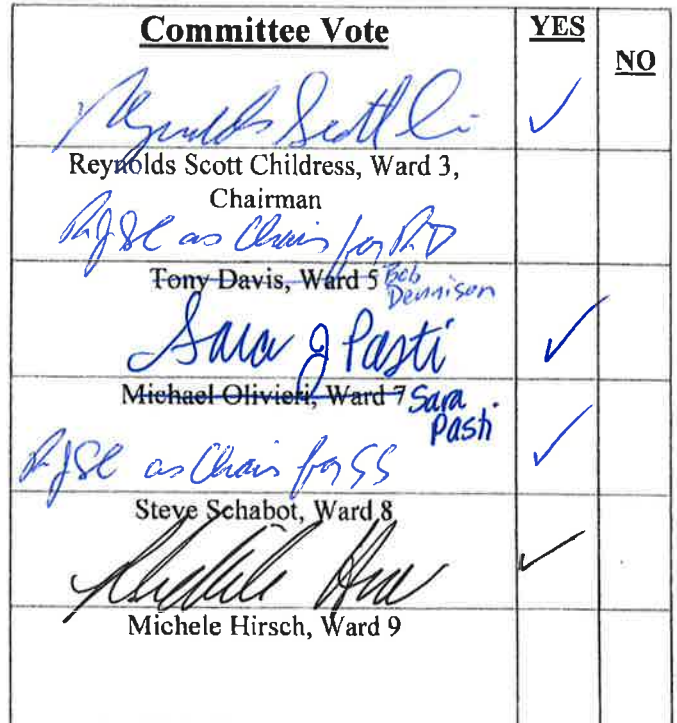 Committee Vote YES NO
Reynolds Scott
Reynolds Scott Childress, Ward 3,
Chairman
RJSC as Chair for RD
Tony Davis, Ward 5 Bob
Dennison
Sara J Pasti
Michael Olivieri, Ward 7 Sara
Pasti
RJSC as Chair for SS
Steve Schabot, Ward 8
Michele Hirsch, Ward 9